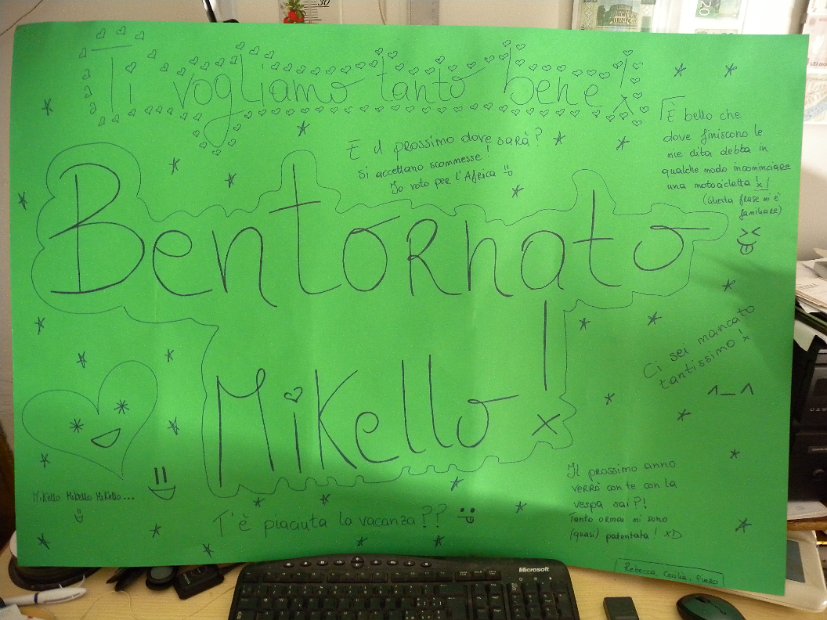 Ti vogliamo tanto bene!
E il prossimo dove sarà?
Si accettano scommesse!
Io voto per l'Africa :)
È bello che
dove finiscono le
mie dita debba in
qualche modo incominciare
una motocicletta!
(Questa frase mi è
familiare)
><
Bentornato
Mikello!
Ci sei mancato
tantissimo!
^_^
Mikello Mikello Mikello...
:)
T'è piaciuta la vacanza??
Il prossimo anno
verrà con te con la
vespa sai?!
Tanto ormai mi sono
(quasi) patentata! XD
Rebecca
Microsoft